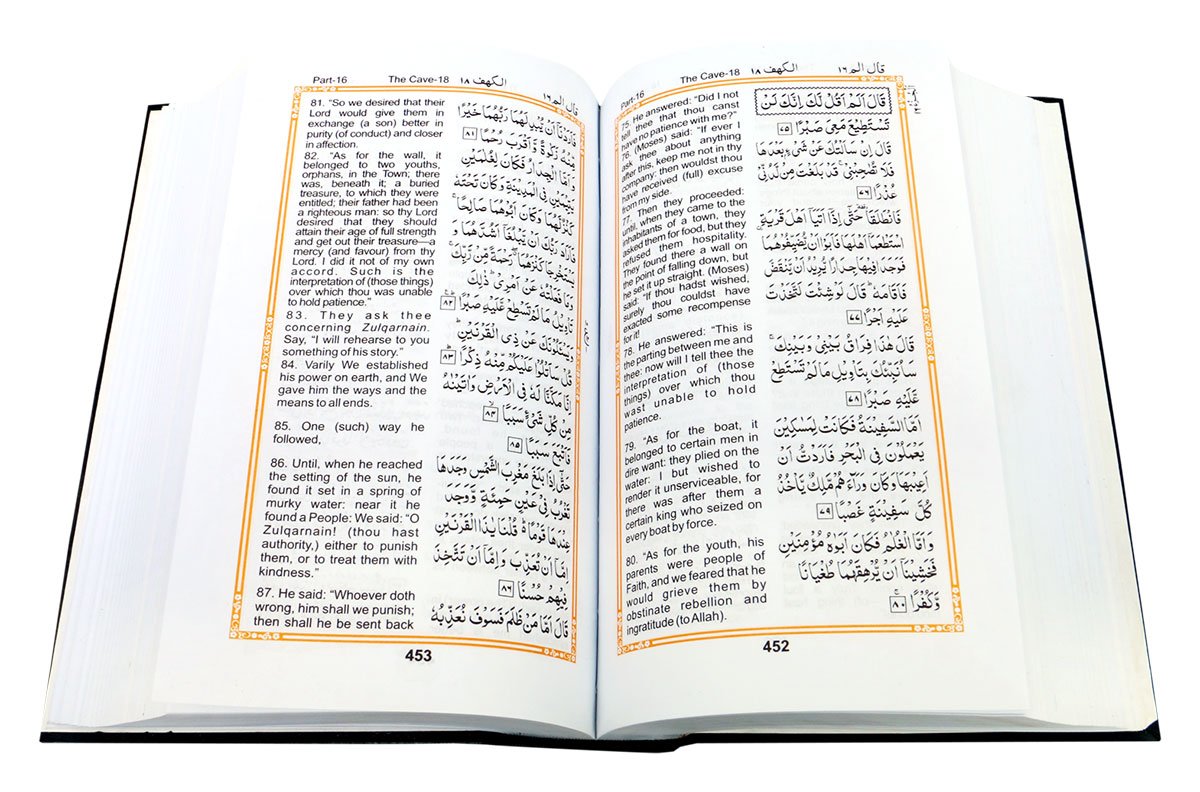 Part-16
The Cave-18 الكهف ١٨
قال الم ١٦
75. He answered: “Did I not
tell thee that thou canst
have no patience with me?”
76. (Moses) said: “If ever I
ask thee about anything
after this, keep me not in thy
company: then wouldst thou
have received (full) excuse
from my side.
77. Then they proceeded:
until, when they came to the
inhabitants of a town, they
asked them for food, but they
refused them hospitality.
They found there a wall on
the point of falling down, but
he set it up straight. (Moses)
said: “If thou hadst wished,
surely thou couldst have
exacted some recompense
for it!
78. He answered: “This is
the parting between me and
thee: now will I tell thee the
interpretation of (those
things) over which thou
wast unable to hold
patience.
79. “As for the boat, it
belonged to certain men in
dire want: they plied on the
water: I but wished to
render it unserviceable, for
there was after them a
certain king who seized on
every boat by force.
80. “As for the youth, his
parents were people of
Faith, and we feared that he
would grieve them by
obstinate rebellion and
ingratitude (to Allah).
قَالَ اَلَمْ اَقُلْ لَّكَ اِنَّكَ لَنْ
تَسْتَطِيْعَ مَعِيَ صَبْرًا ٧٥
قَالَ اِنْ سَاَلْتُكَ عَنْ شَيْءٍ بَعْدَهَا
فَلَا تُصٰحِبْنِيْ قَدْ بَلَغْتَ مِنْ لَّدُنِّيْ
عُذْرًا ٧٦
فَانْطَلَقَا حَتّٰى اِذَا اَتَيَا اَهْلَ قَرْيَةِ
اسْتَطْعَمَا اَهْلَهَا فَاَبَوْا اَنْ يُّضَيِّفُوْهُمَا
فَوَجَدَا فِيْهَا جِدَارًا يُّرِيْدُ اَنْ يَّنْقَضَّ
فَاَقَامَهٗ قَالَ لَوْ شِئْتَ لَتَّخَذْتَ
عَلَيْهِ اَجْرًا ٧٧
قَالَ هٰذَا فِرَاقُ بَيْنِيْ وَبَيْنِكَ
سَاُنَبِّئُكَ بِتَاْوِيْلِ مَا لَمْ تَسْتَطِعْ
عَّلَيْهِ صَبْرًا ٧٨
اَمَّا السَّفِيْنَةُ فَكَانَتْ لِمَسٰكِيْنَ
يَعْمَلُوْنَ فِي الْبَحْرِ فَاَرَدْتُّ اَنْ
اَعِيْبَهَا وَكَانَ وَرَآءَهُمْ مَّلِكٌ يَّاْخُذُ
كُلَّ سَفِيْنَةٍ غَصْبًا ٧٩
وَاَمَّا الْغُلٰمُ فَكَانَ اَبَوٰهُ مُؤْمِنَيْنِ
فَخَشِيْنَآ اَنْ يُّرْهِقَهُمَا طُغْيَانًا
وَّكُفْرًا ٨٠
452
Part-16
The Cave-18 الكهف ١٨
قال الم ١٦
81. “So we desired that their
Lord would give them in
exchange (a son) better in
purity (of conduct) and closer
in affection.
82. “As for the wall, it
belonged to two youths,
orphans, in the Town; there
was, beneath it; a buried
treasure, to which they were
entitled; their father had been
a righteous man: so thy Lord
desired that they should
attain their age of full strength
and get out their treasure—a
mercy (and favour) from thy
Lord. I did it not of my own
accord. Such is the
interpretation of (those things)
over which thou was unable
to hold patience.”
83. They ask thee
concerning Zulqarnain.
Say, “I will rehearse to you
something of his story.”
84. Varily We established
his power on earth, and We
gave him the ways and the
means to all ends.
85. One (such) way he
followed,
86. Until, when he reached
the setting of the sun, he
found it set in a spring of
murky water: near it he
found a People: We said: “O
Zulqarnain! (thou hast
authority,) either to punish
them, or to treat them with
kindness.”
87. He said: “Whoever doth
wrong, him shall we punish;
then shall he be sent back
فَاَرَدْنَآ اَنْ يُّبْدِلَهُمَا رَبُّهُمَا خَيْرًا
مِّنْهُ زَكٰوةً وَّاَقْرَبَ رُحْمًا ٨١
وَاَمَّا الْجِدَارُ فَكَانَ لِغُلٰمَيْنِ
يَتِيْمَيْنِ فِي الْمَدِيْنَةِ وَكَانَ تَحْتَهٗ
كَنْزٌ لَّهُمَا وَكَانَ اَبُوْهُمَا صَالِحًا
فَاَرَادَ رَبُّكَ اَنْ يَّبْلُغَآ اَشُدَّهُمَا وَ
يَسْتَخْرِجَا كَنْزَهُمَا رَحْمَةً مِّنْ رَّبِّكَ
وَمَا فَعَلْتُهٗ عَنْ اَمْرِيْ ذٰلِكَ
تَاْوِيْلُ مَا لَمْ تَسْطِعْ عَّلَيْهِ صَبْرًا ٨٢
وَيَسْـَٔلُوْنَكَ عَنْ ذِي الْقَرْنَيْنِ
قُلْ سَاَتْلُوْا عَلَيْكُمْ مِّنْهُ ذِكْرًا ٨٣
اِنَّا مَكَّنَّا لَهٗ فِي الْاَرْضِ وَاٰتَيْنٰهُ
مِنْ كُلِّ شَيْءٍ سَبَبًا ٨٤
فَاَتْبَعَ سَبَبًا ٨٥
حَتّٰى اِذَا بَلَغَ مَغْرِبَ الشَّمْسِ وَجَدَهَا
تَغْرُبُ فِيْ عَيْنٍ حَمِئَةٍ وَّوَجَدَ
عِنْدَهَا قَوْمًا قُلْنَا يٰذَا الْقَرْنَيْنِ
اِمَّآ اَنْ تُعَذِّبَ وَاِمَّآ اَنْ تَتَّخِذَ
فِيْهِمْ حُسْنًا ٨٦
قَالَ اَمَّا مَنْ ظَلَمَ فَسَوْفَ نُعَذِّبُهٗ
453